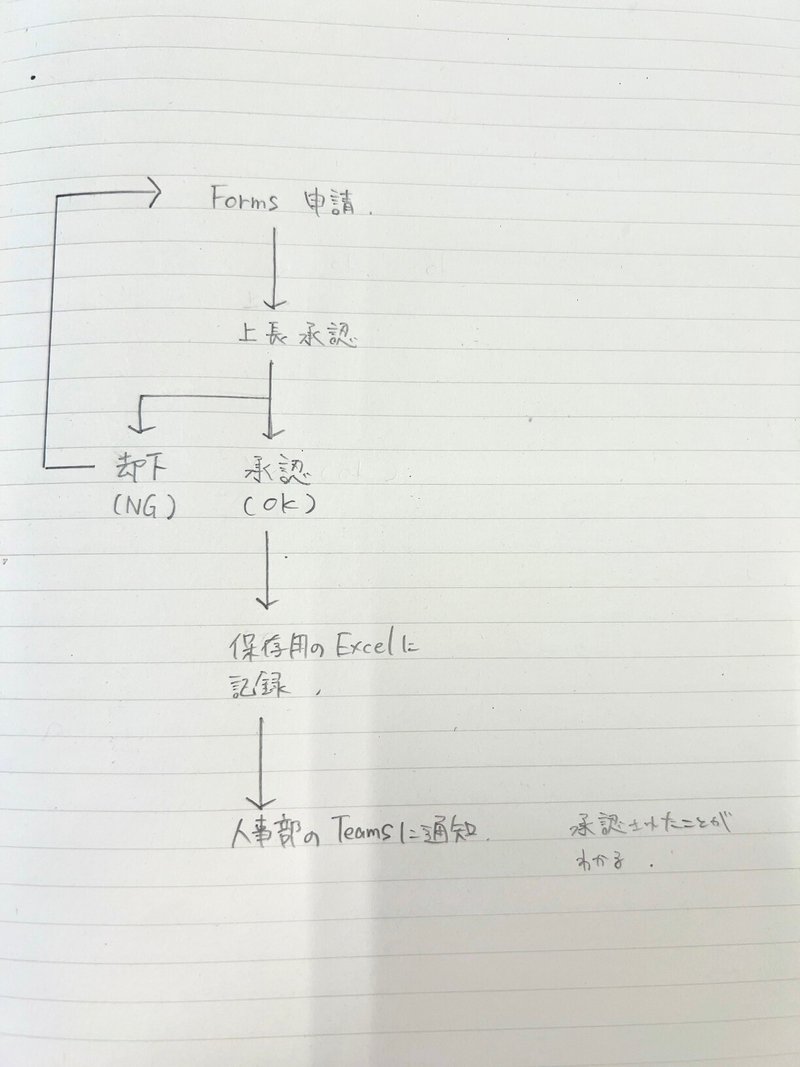 Forms 申請.
上長承認
却下
(NG)
承認
(OK)
保存用のExcelに
記録.
人事部のTeamsに通知.
承認されたことが
わかる.